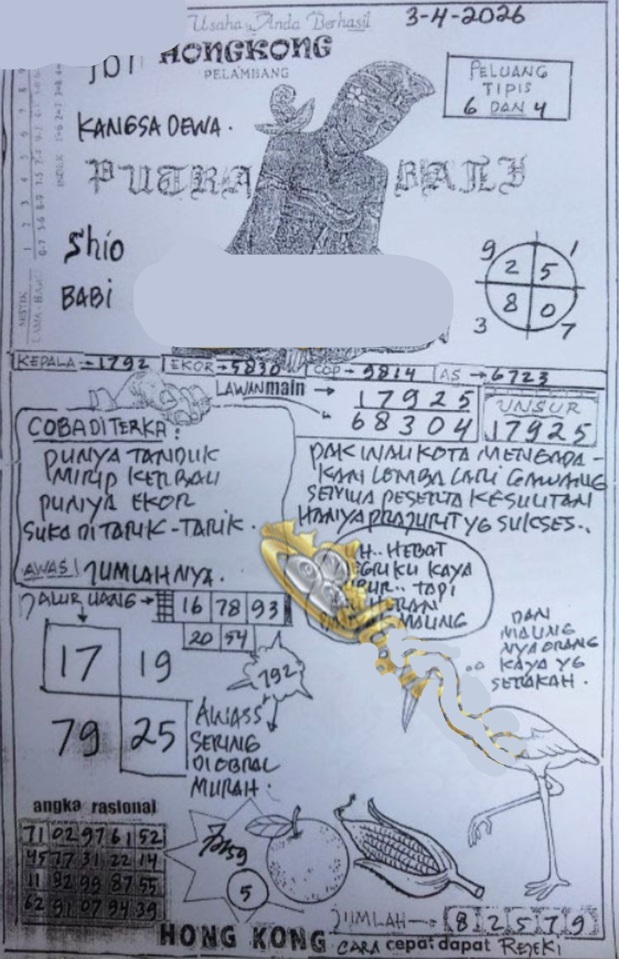 Usaha Anda Berhasil
3-4-2026
HONGKONG
PELAMBANG
PELUANG
TIPIS
6 DAN 4
KANGSA DEWA.
PUTRA BALI
Shio
BABI
9 1
2 5
8 0
3 7
KEPALA → 1792 EKOR → 5830 COP → 9814 AS → 6723
LAWAN main → 17925
68304
UNSUR
17925
COBA DITERKA:
PUNYA TANDUK
MIRIP KERBAU
PUNYA EKOR
SUKA DITARIK-TARIK.
AWAS! JUMLAHNYA.
PAK WALIKOTA MENGADA-
KAN LOMBA LARI GAWANG
SEMUA PESERTA KESULITAN
HANYA PRAJURIT YG SUKSES..
HEBAT
KAYA
TAPI
MAUNG
DAN
MAUNG
NYA ORANG
KAYA YG
SERAKAH.
JALUR UANG → 16 78 93
20 54
17 19
79 25
792
AWASS
SERING
DIOBRAL
MURAH.
angka rasional
71 02 97 61 52
45 77 31 22 14
11 92 99 87 55
62 91 07 94 39
5
JUMLAH → 8 2 5 7 9
HONG KONG CARA cepat dapat REJEKI